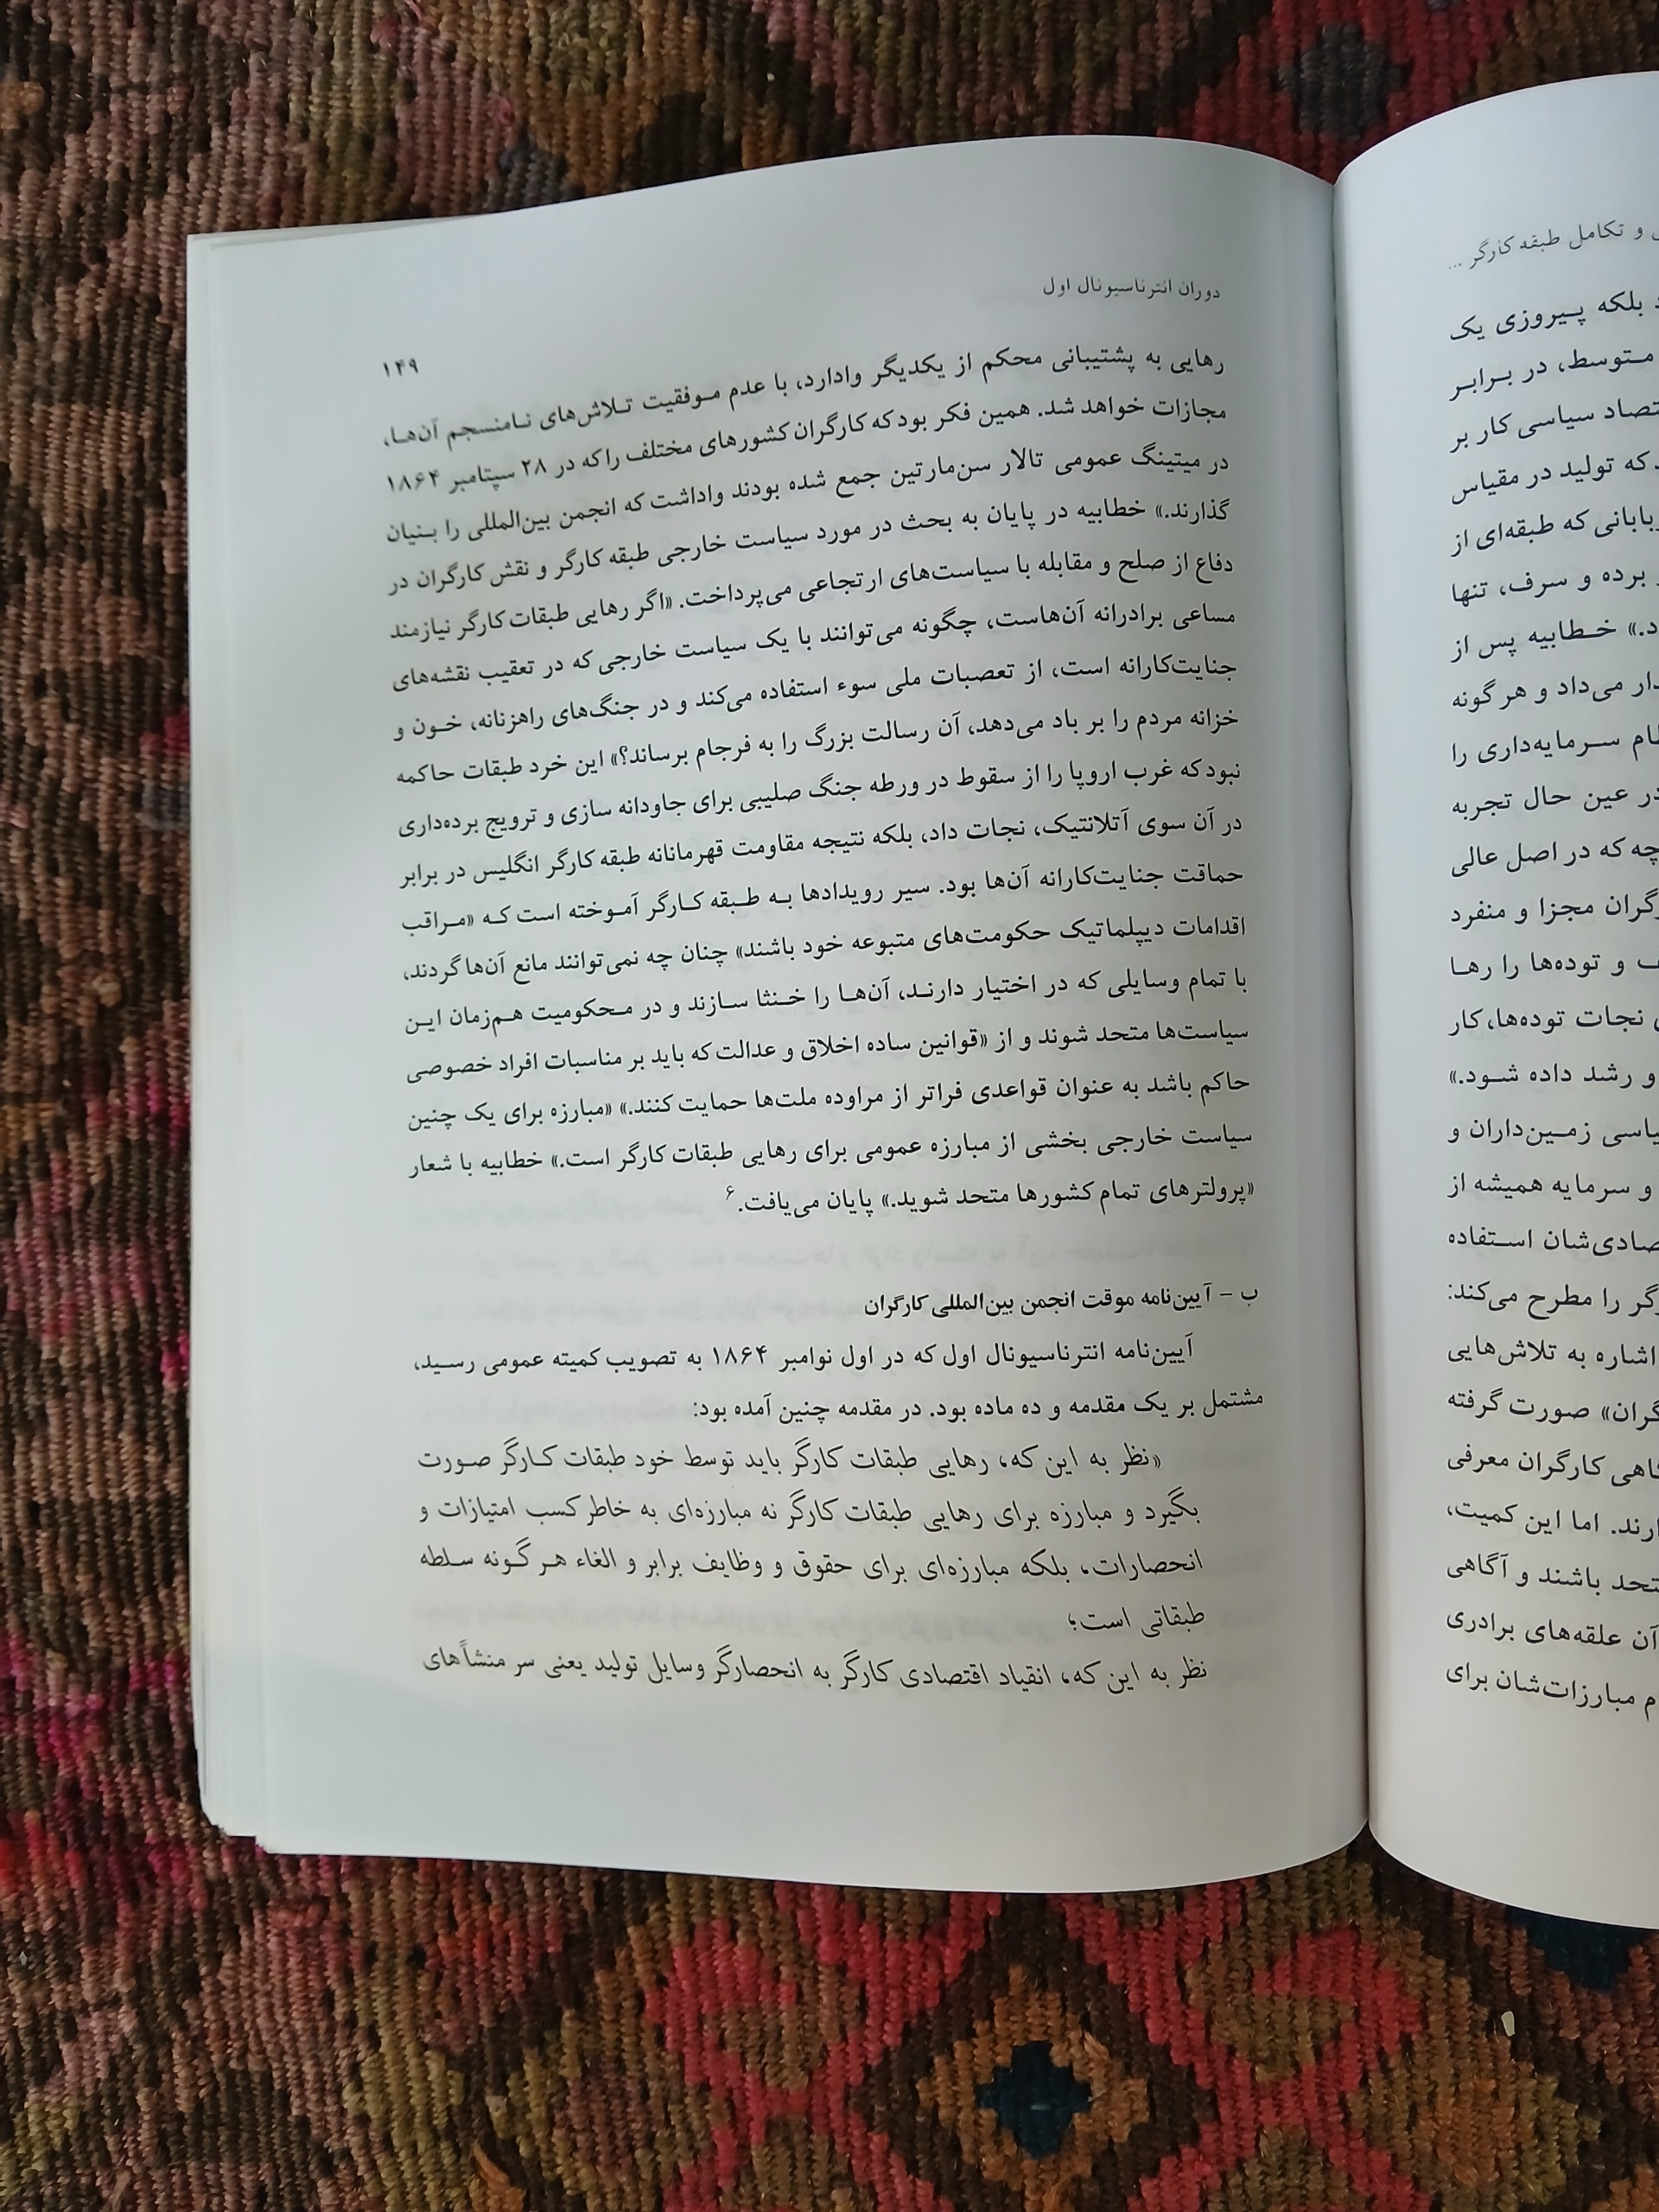 دوران انترناسیونال اول
۱۴۹
رهایی به پشتیبانی محکم از یکدیگر وادارد، با عدم موفقیت تلاش‌های نامنسجم آن‌ها،
مجازات خواهد شد. همین فکر بود که کارگران کشورهای مختلف را که در ۲۸ سپتامبر ۱۸۶۴
در میتینگ عمومی تالار سن‌مارتین جمع شده بودند واداشت که انجمن بین‌المللی را بنیان
گذارند.» خطابیه در پایان به بحث در مورد سیاست خارجی طبقه کارگر و نقش کارگران در
دفاع از صلح و مقابله با سیاست‌های ارتجاعی می‌پرداخت. «اگر رهایی طبقات کارگر نیازمند
مساعی برادرانه آن‌هاست، چگونه می‌توانند با یک سیاست خارجی که در تعقیب نقشه‌های
جنایت‌کارانه است، از تعصبات ملی سوء استفاده می‌کند و در جنگ‌های راهزنانه، خون و
خزانه مردم را بر باد می‌دهد، آن رسالت بزرگ را به فرجام برساند؟» این خرد طبقات حاکمه
نبود که غرب اروپا را از سقوط در ورطه جنگ صلیبی برای جاودانه سازی و ترویج برده‌داری
در آن سوی آتلانتیک، نجات داد، بلکه نتیجه مقاومت قهرمانانه طبقه کارگر انگلیس در برابر
حماقت جنایت‌کارانه آن‌ها بود. سیر رویدادها به طبقه کارگر آموخته است که «مراقب
اقدامات دیپلماتیک حکومت‌های متبوعه خود باشند» چنان چه نمی‌توانند مانع آن‌ها گردند،
با تمام وسایلی که در اختیار دارند، آن‌ها را خنثا سازند و در محکومیت هم‌زمان این
سیاست‌ها متحد شوند و از «قوانین ساده اخلاق و عدالت که باید بر مناسبات افراد خصوصی
حاکم باشد به عنوان قواعدی فراتر از مراوده ملت‌ها حمایت کنند.» «مبارزه برای یک چنین
سیاست خارجی بخشی از مبارزه عمومی برای رهایی طبقات کارگر است.» خطابیه با شعار
«پرولترهای تمام کشورها متحد شوید.» پایان می‌یافت.۶
ب - آیین‌نامه موقت انجمن بین‌المللی کارگران
آیین‌نامه انترناسیونال اول که در اول نوامبر ۱۸۶۴ به تصویب کمیته عمومی رسید،
مشتمل بر یک مقدمه و ده ماده بود. در مقدمه چنین آمده بود:
«نظر به این که، رهایی طبقات کارگر باید توسط خود طبقات کارگر صورت
بگیرد و مبارزه برای رهایی طبقات کارگر نه مبارزه‌ای به خاطر کسب امتیازات و
انحصارات، بلکه مبارزه‌ای برای حقوق و وظایف برابر و الغاء هر گونه سلطه
طبقاتی است؛
نظر به این که، انقیاد اقتصادی کارگر به انحصارگر وسایل تولید یعنی سر منشأهای
و تکامل طبقه کارگر ...
بلکه پیروزی یک
متوسط، در برابر
سیاسی کار بر
که تولید در مقیاس
که طبقه‌ای از
برده و سرف، تنها
خطابیه پس از
می‌داد و هر گونه
سرمایه‌داری را
در عین حال تجربه
چه که در اصل عالی
مجزا و منفرد
و توده‌ها را رها
نجات توده‌ها، کار
و رشد داده شود.»
زمین‌داران و
و سرمایه همیشه از
استفاده
را مطرح می‌کند:
اشاره به تلاش‌هایی
صورت گرفته
کارگران معرفی
اما این کمیت،
باشند و آگاهی
آن علقه‌های برادری
مبارزات‌شان برای